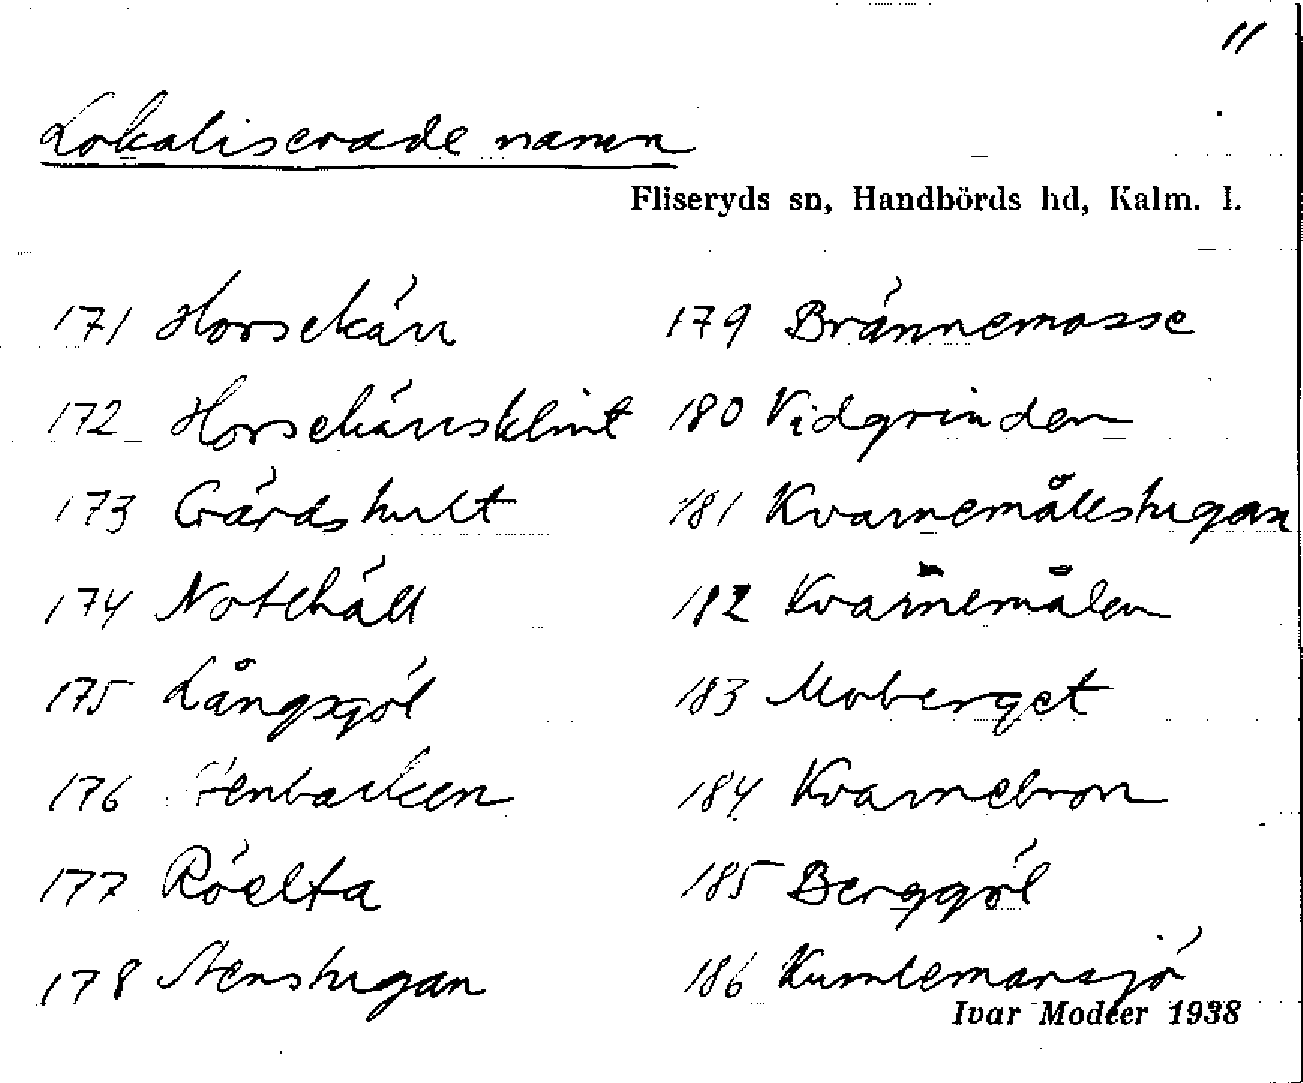 11
Lokaliserade namn
Fliseryds sn, Handbörds hd, Kalm. l.
171 Horsekärr
172 Horsekärrsklint
173 Gärdshult
174 Notehäll
175 Långsgöl
176 Stenbacken
177 Röelta
178 Stenstugan
179 Brännemosse
180 Vidgrinden
181 Kvarnemålestugan
182 Kvarnemålen
183 Moberget
184 Kvarnebron
185 Berggöl
186 Kumlemarsjö
Ivar Modéer 1938